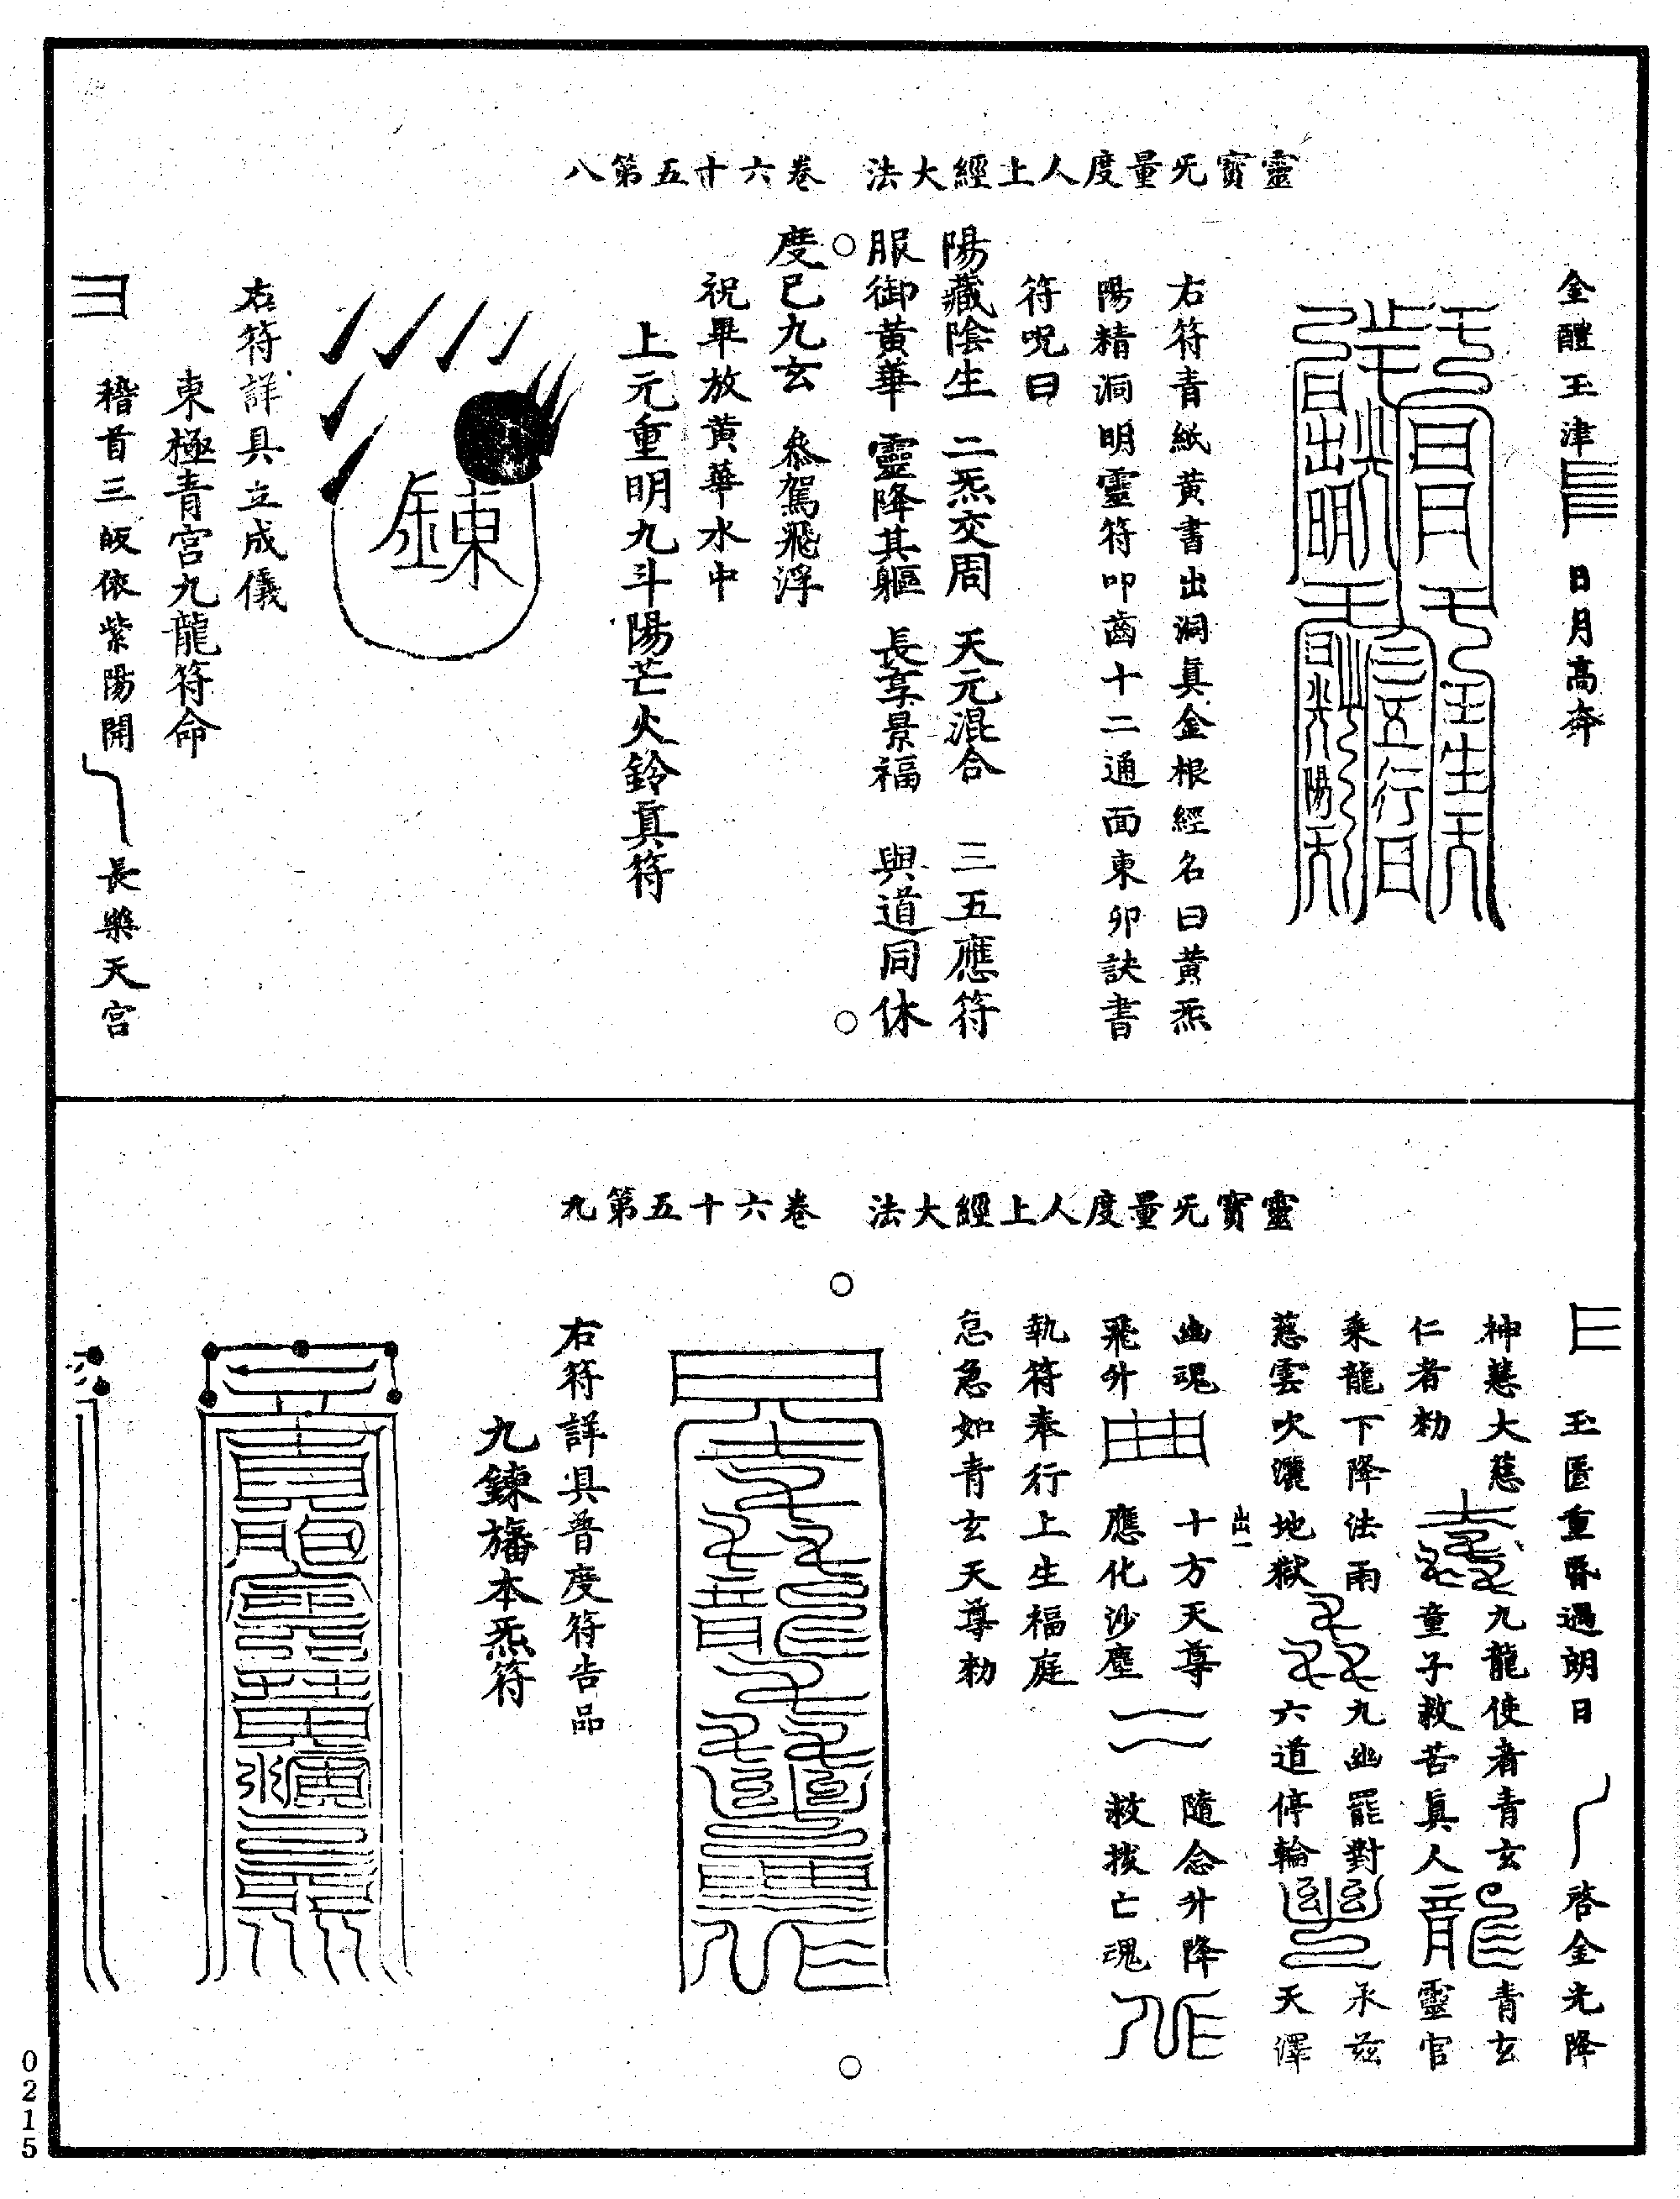 靈寶旡量度人上經大法　卷六十五第八
金醴玉津　日月高奔
右符青紙黃書出洞眞金根經名曰黃炁
陽精洞明靈符叩齒十二通面東卯訣書
符呪曰
陽藏陰生　二炁交周　天元混合　三五應符
服御黃華　靈降其軀　長享景福　與道同休
度已九玄　叅駕飛浮
祝畢放黃華水中
上元重明九斗陽芒火鈴眞符
鍊
右符詳具立成儀
東極青宮九龍符命
稽首三皈依紫陽開　長樂天宮
靈寶旡量度人上經大法　卷六十五第九
玉匱重昏遇朗日　啓金光降
神慧大慈　九龍使者青玄　青玄
仁者勑　童子救苦眞人　靈官
乘龍下降法雨　九幽罷對　承茲
慈雲吹灑地獄　六道停輪　天澤
出一
幽魂　十方天尊　隨念升降
飛升　應化沙塵　救拔亡魂
執符奉行上生福庭
急急如青玄天尊勑
右符詳具普度符告品
九鍊旛本炁符
0215